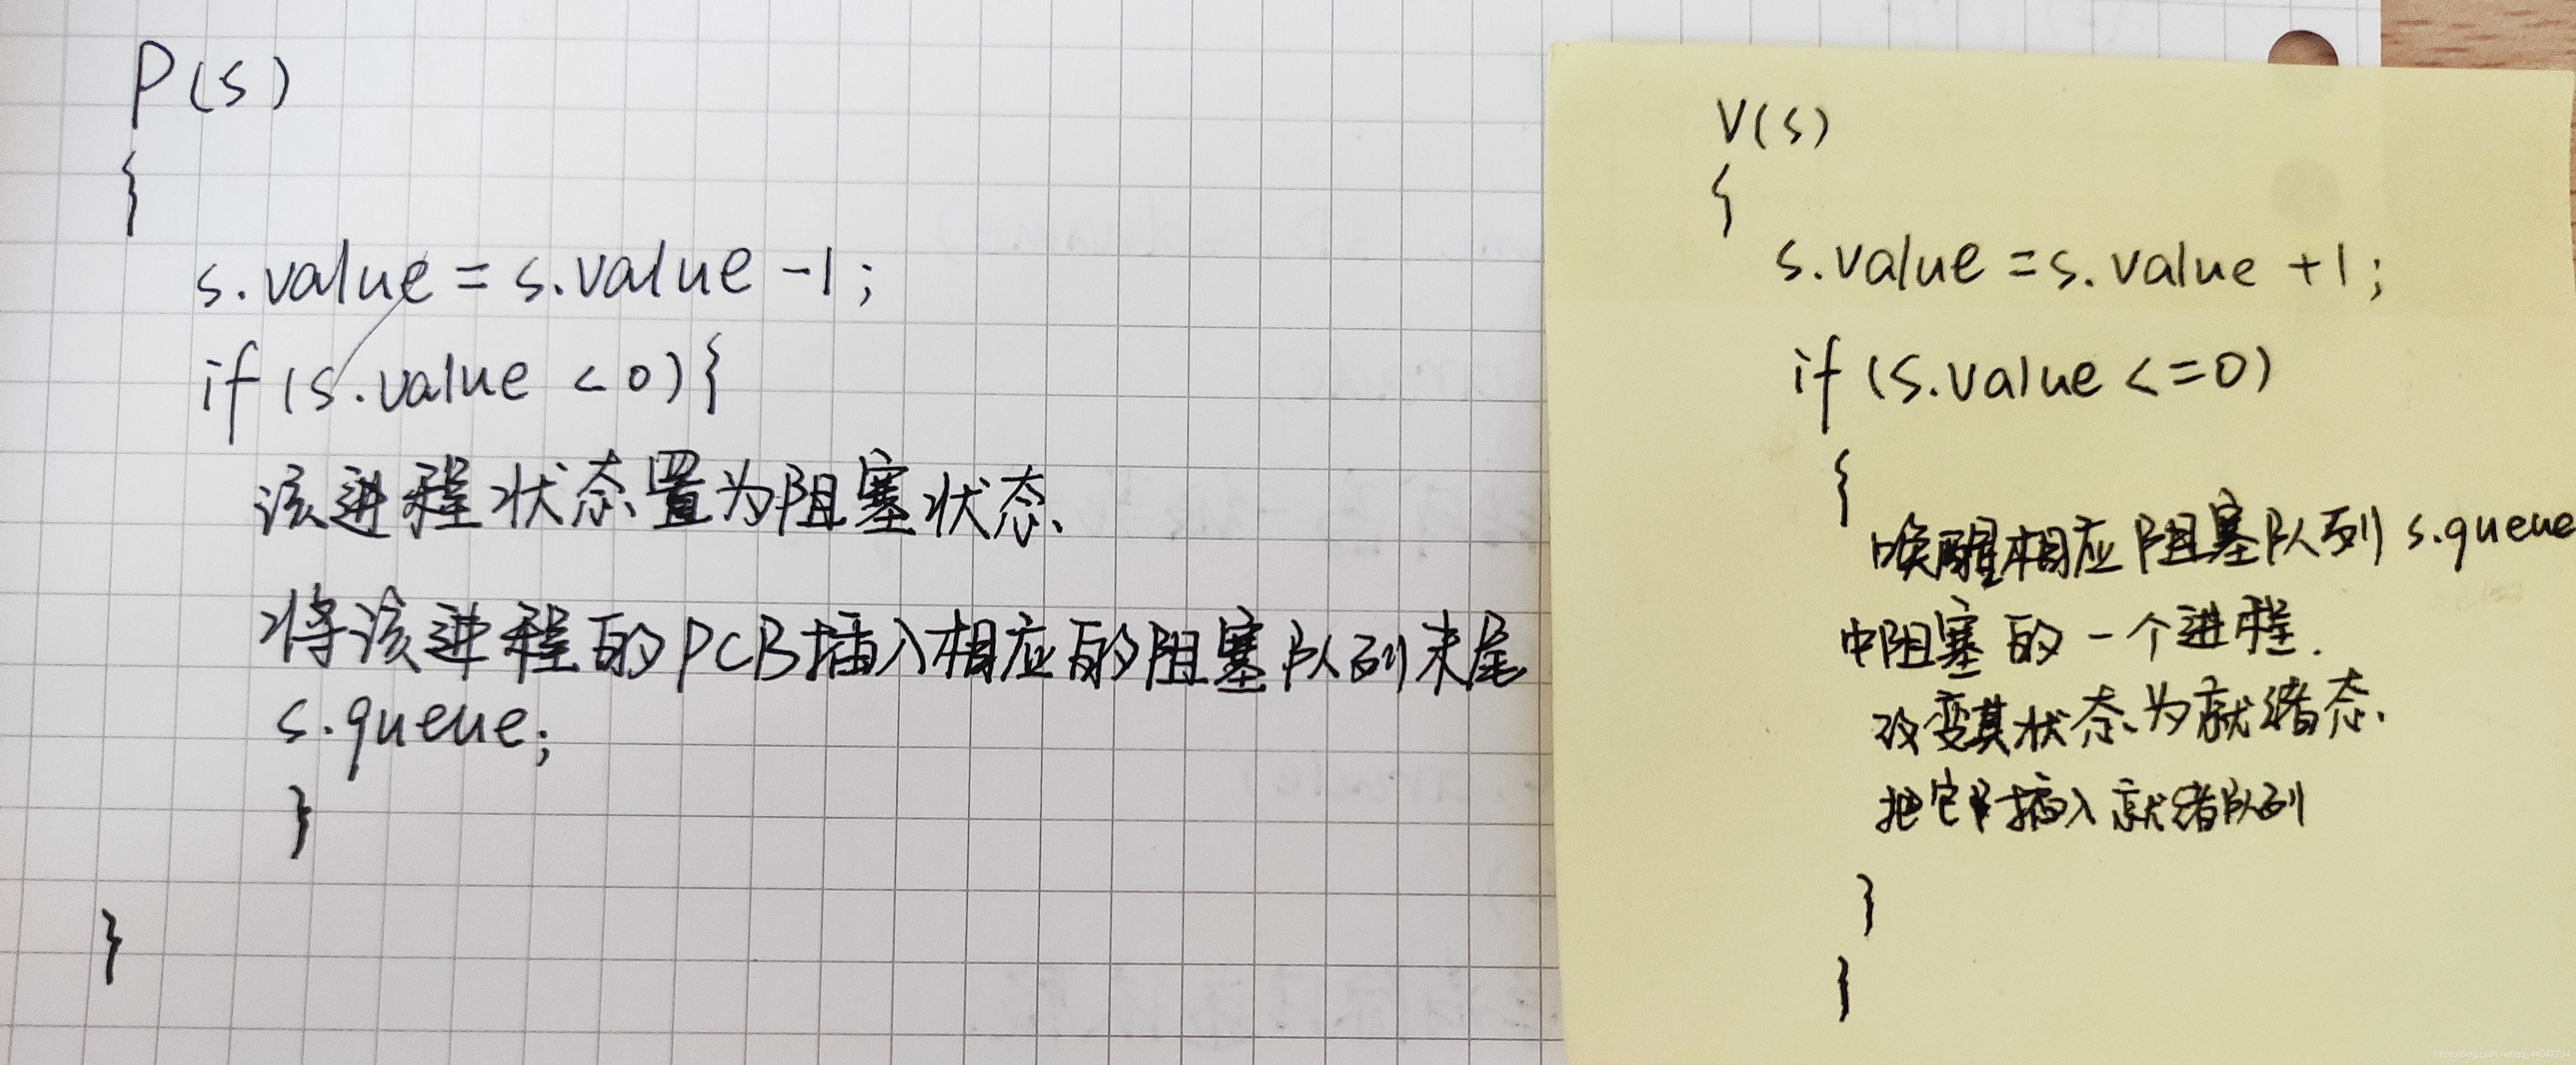 P(s)
{
s.value = s.value -1;
if (s.value < 0){
该进程状态置为阻塞状态
将该进程的PCB插入相应的阻塞队列末尾
s.queue;
}
}
V(s)
{
s.value = s.value +1;
if (s.value <= 0)
{
唤醒相应阻塞队列 s.queue
中阻塞的一个进程.
改变其状态为就绪态.
把它插入就绪队列
}
}
https://blog.csdn.net/qq_44942734